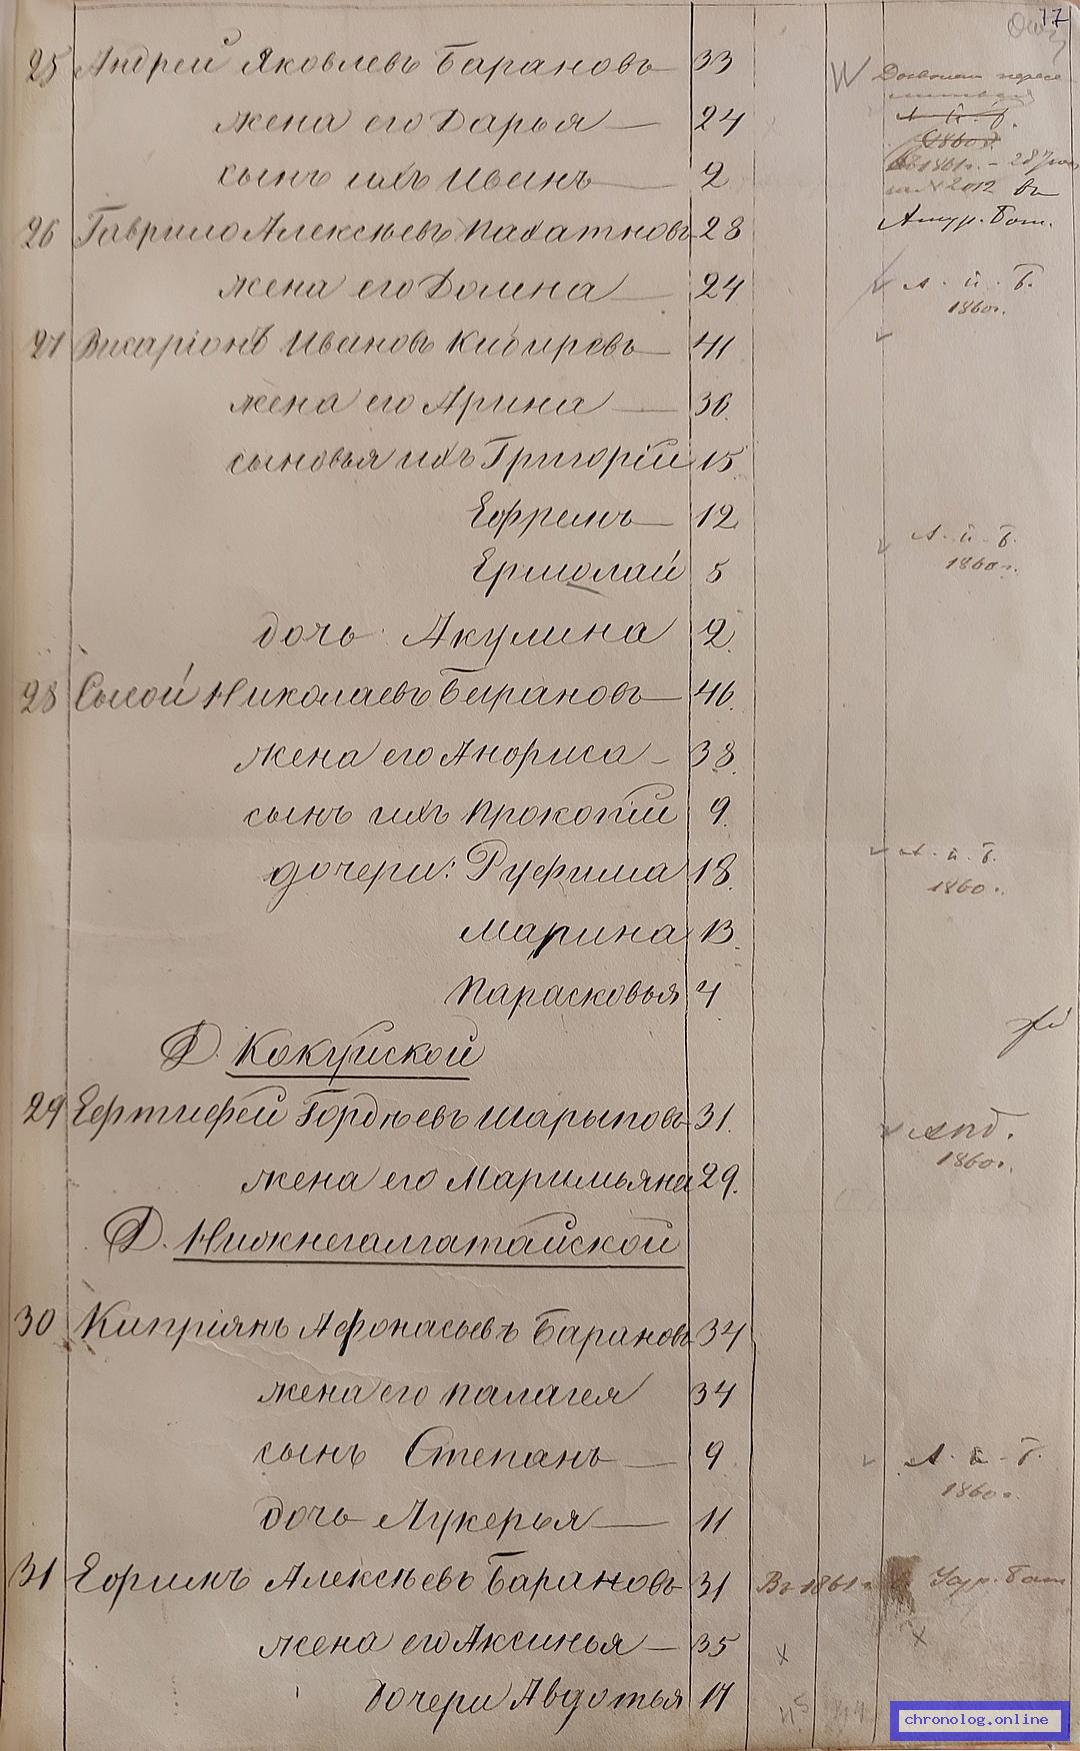 17
25 Андрей Яковлевъ Барановъ 33
жена его Дарья 24
сынъ ихъ Иванъ 2
Дозволено пересе
1860 г.
въ 1861 г. - 28
№ 2012 въ
Амур. Бат.
26 Гаврило Алексѣевъ Пахатновъ 28
жена его Домна 24
А. п. б.
1860 г.
27 Виссаріонъ Ивановъ Кибиревъ 41
жена его Арина 36.
сыновья ихъ Григорій 15
Ефремъ 12
Ермолай 5
А. п. б.
1860 г.
дочь Акулина 2
28 Сысой Николаевъ Барановъ 46.
жена его Анфиса 38.
сынъ ихъ Прокопій 9.
дочери: Руфима 18.
А. п. б.
1860 г.
Марина 13.
Парасковья 4
Д. Кокуйской
29 Евтифей Гордѣевъ Шарыповъ 31.
жена его Маримьяна 29.
апб.
1860 г.
Д. Нижнегалгатайской
30 Кипріянъ Афонасьевъ Барановъ 34
жена его Палагея 34
сынъ Степанъ 9
А. п. б.
1860 г.
дочь Лукерья 11
31 Ефимъ Алексѣевъ Барановъ 31 Въ 1861 г. в Уссур. бат
жена его Аксинья 35 х
дочери Авдотья 17
chronolog.online